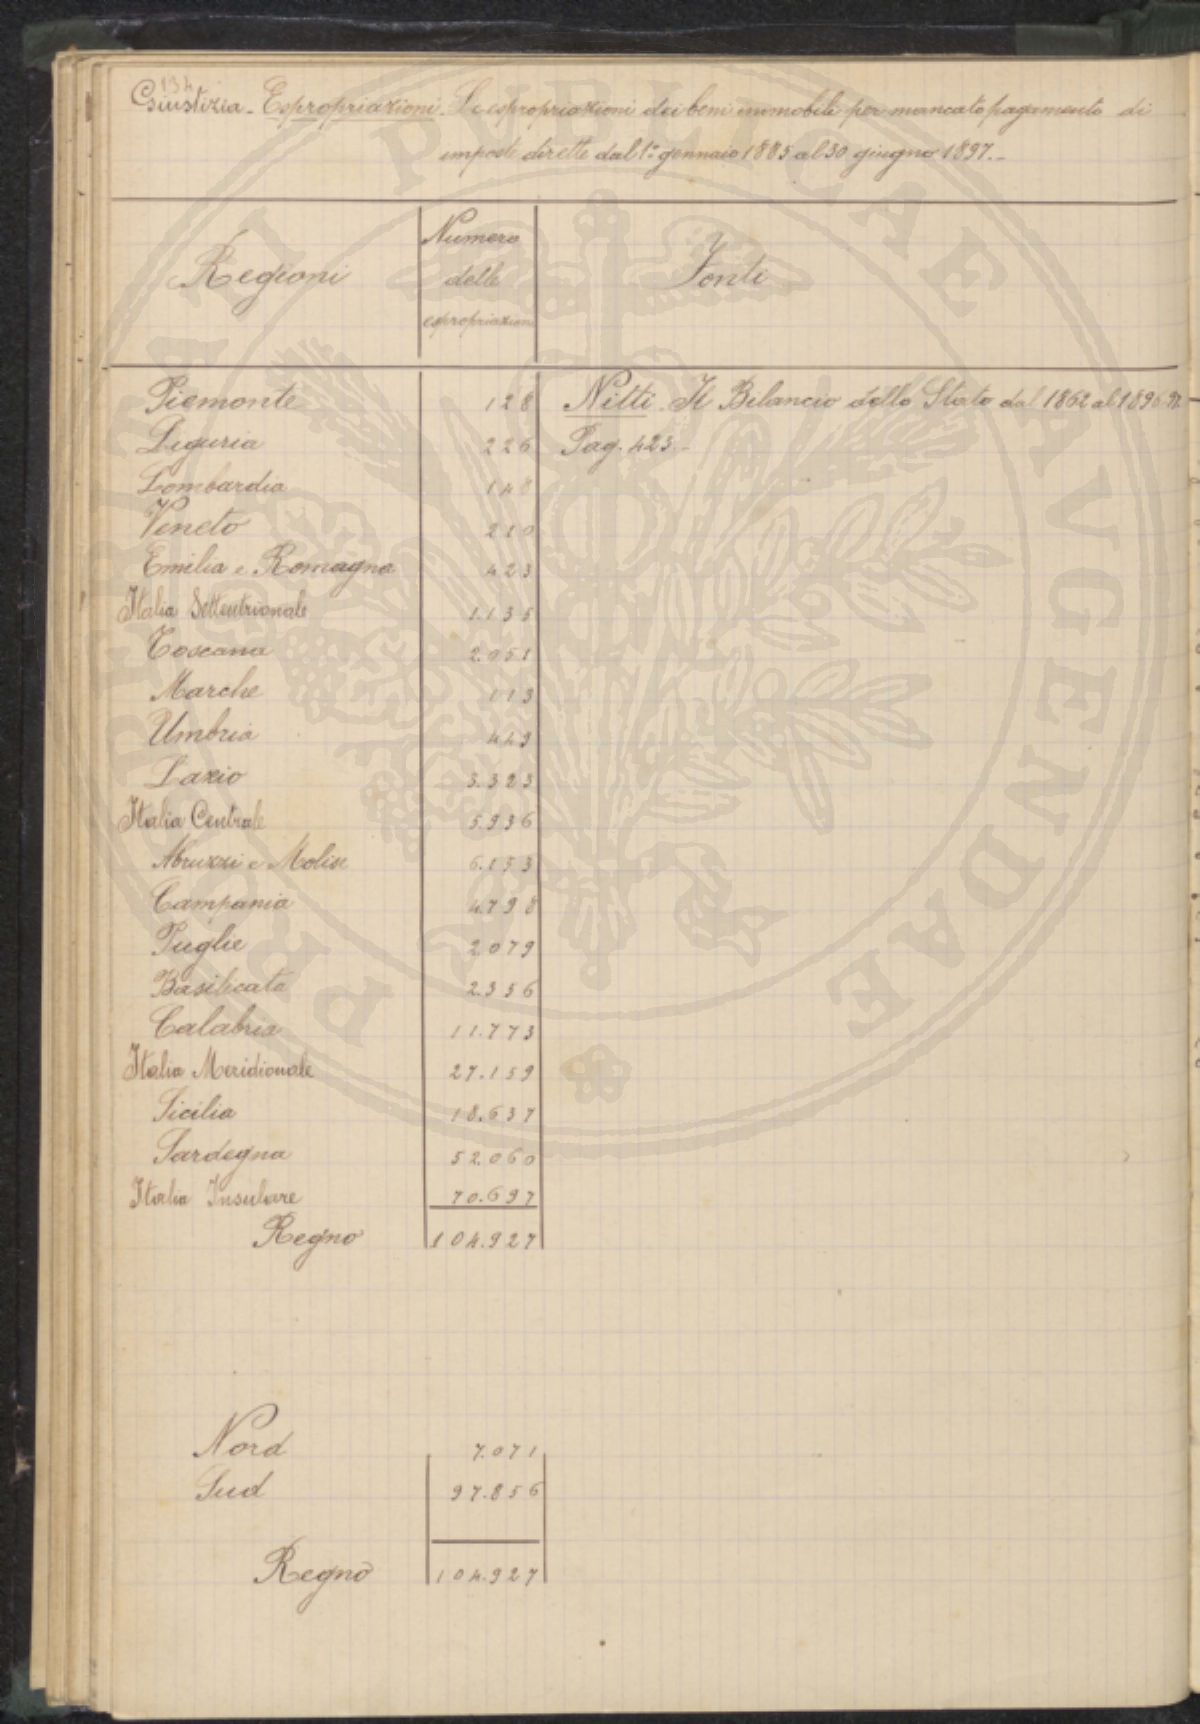 134
Giustizia - Espropriazioni - Le espropriazioni dei beni immobili per mancato pagamento di
imposte dirette dal 1° gennaio 1885 al 30 giugno 1897.-
Regioni | Numero delle espropriazioni | Fonti
Piemonte 128 Nitti - Il Bilancio dello Stato dal 1862 al 1896-97
Liguria 226 Pag. 423-
Lombardia 148
Veneto 210
Emilia e Romagna 423
Italia Settentrionale 1.135
Toscana 2.051
Marche 113
Umbria 449
Lazio 3.323
Italia Centrale 5.936
Abruzzi e Molise 6.153
Campania 4.798
Puglie 2.079
Basilicata 2.356
Calabria 11.773
Italia Meridionale 27.159
Sicilia 18.637
Sardegna 52.060
Italia Insulare 70.697
Regno 104.927
Nord 7.071
Sud 97.856
Regno 104.927
PUBLICAE AVGENDAE